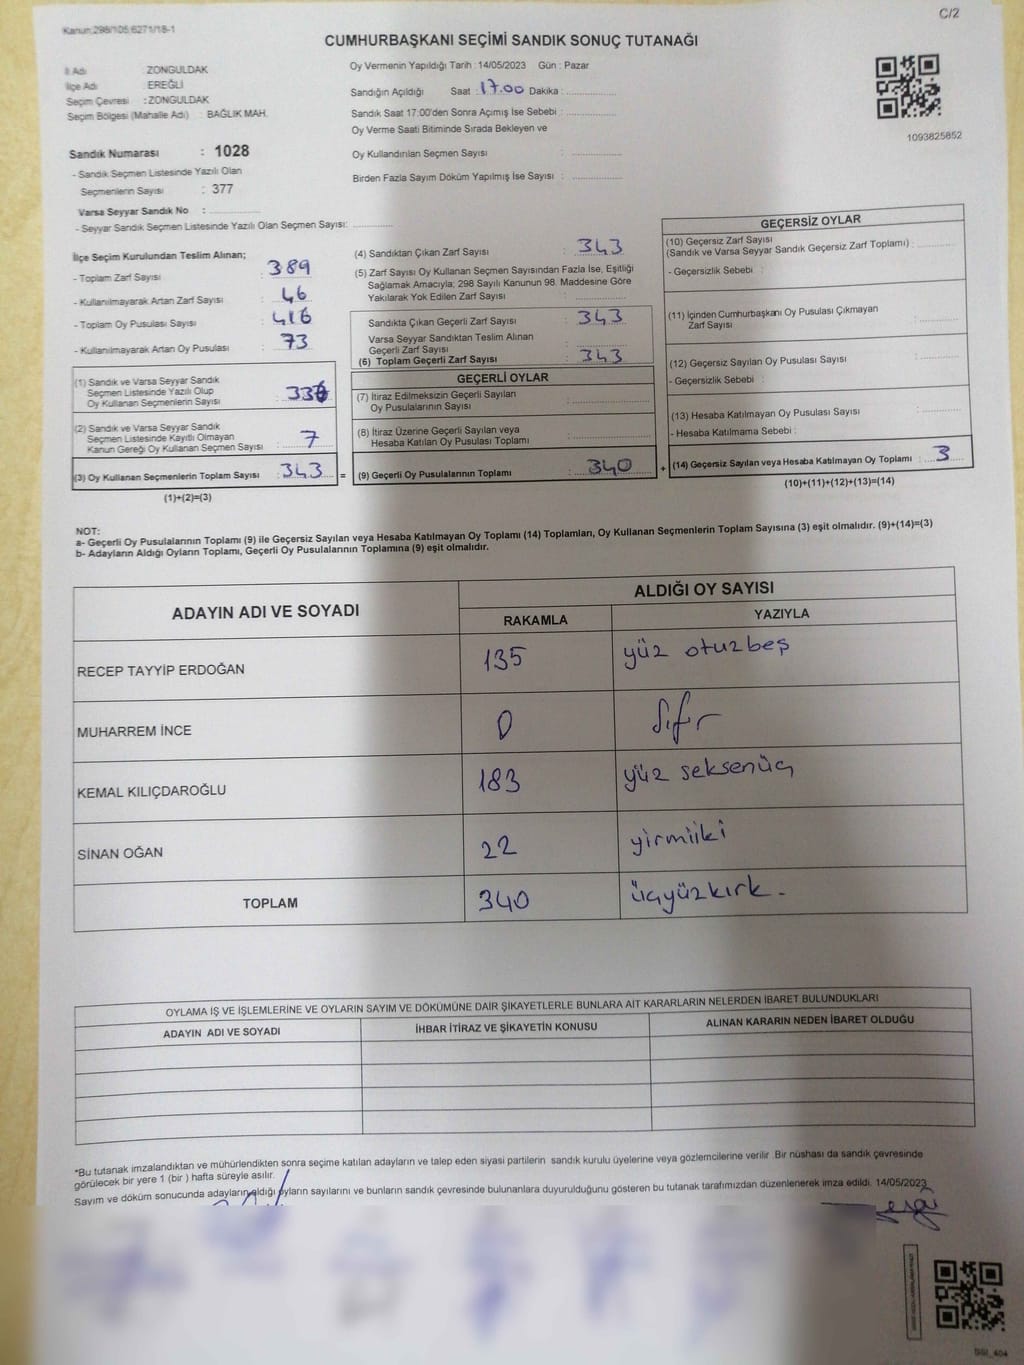 Kanun:298/105;6271/18-1
C/2
CUMHURBAŞKANI SEÇİMİ SANDIK SONUÇ TUTANAĞI
İl Adı : ZONGULDAK
İlçe Adı : EREĞLİ
Seçim Çevresi : ZONGULDAK
Seçim Bölgesi (Mahalle Adı) : BAĞLIK MAH.
Sandık Numarası : 1028
- Sandık Seçmen Listesinde Yazılı Olan
Seçmenlerin Sayısı : 377
Varsa Seyyar Sandık No : ...............
- Seyyar Sandık Seçmen Listesinde Yazılı Olan Seçmen Sayısı: ............
Oy Vermenin Yapıldığı Tarih : 14/05/2023 Gün : Pazar
Sandığın Açıldığı Saat : 17.00 Dakika : ...............
Sandık Saat 17:00'den Sonra Açımış İse Sebebi : ...............
Oy Verme Saati Bitiminde Sırada Bekleyen ve
Oy Kullandırılan Seçmen Sayısı : ...............
Birden Fazla Sayım Döküm Yapılmış İse Sayısı : ...............
1093825852
İlçe Seçim Kurulundan Teslim Alınan;
- Toplam Zarf Sayısı : 389
- Kullanılmayarak Artan Zarf Sayısı : 46
- Toplam Oy Pusulası Sayısı : 416
- Kullanılmayarak Artan Oy Pusulası : 73
(1) Sandık ve Varsa Seyyar Sandık
Seçmen Listesinde Yazılı Olup
Oy Kullanan Seçmenlerin Sayısı : 336
(2) Sandık ve Varsa Seyyar Sandık
Seçmen Listesinde Kayıtlı Olmayan
Kanun Gereği Oy Kullanan Seçmen Sayısı : 7
(3) Oy Kullanan Seçmenlerin Toplam Sayısı : 343 =
(1)+(2)=(3)
(4) Sandıktan Çıkan Zarf Sayısı : 343
(5) Zarf Sayısı Oy Kullanan Seçmen Sayısından Fazla İse, Eşitliği
Sağlamak Amacıyla; 298 Sayılı Kanunun 98. Maddesine Göre
Yakılarak Yok Edilen Zarf Sayısı : ...............
Sandıkta Çıkan Geçerli Zarf Sayısı : 343
Varsa Seyyar Sandıktan Teslim Alınan
Geçerli Zarf Sayısı : ...............
(6) Toplam Geçerli Zarf Sayısı : 343
GEÇERLİ OYLAR
(7) İtiraz Edilmeksizin Geçerli Sayılan
Oy Pusulalarının Sayısı : ...............
(8) İtiraz Üzerine Geçerli Sayılan veya
Hesaba Katılan Oy Pusulası Toplamı : ...............
(9) Geçerli Oy Pusulalarının Toplamı : 340 +
GEÇERSİZ OYLAR
(10) Geçersiz Zarf Sayısı
(Sandık ve Varsa Seyyar Sandık Geçersiz Zarf Toplamı) : ............
- Geçersizlik Sebebi :
(11) İçinden Cumhurbaşkanı Oy Pusulası Çıkmayan
Zarf Sayısı : ............
(12) Geçersiz Sayılan Oy Pusulası Sayısı : ............
- Geçersizlik Sebebi :
(13) Hesaba Katılmayan Oy Pusulası Sayısı : ............
- Hesaba Katılmama Sebebi :
(14) Geçersiz Sayılan veya Hesaba Katılmayan Oy Toplamı : 3
(10)+(11)+(12)+(13)=(14)
NOT:
a- Geçerli Oy Pusulalarının Toplamı (9) ile Geçersiz Sayılan veya Hesaba Katılmayan Oy Toplamı (14) Toplamları, Oy Kullanan Seçmenlerin Toplam Sayısına (3) eşit olmalıdır. (9)+(14)=(3)
b- Adayların Aldığı Oyların Toplamı, Geçerli Oy Pusulalarının Toplamına (9) eşit olmalıdır.
ADAYIN ADI VE SOYADI
ALDIĞI OY SAYISI
RAKAMLA YAZIYLA
RECEP TAYYİP ERDOĞAN 135 yüz otuzbeş
MUHARREM İNCE 0 Sıfır
KEMAL KILIÇDAROĞLU 183 yüz seksenüç
SİNAN OĞAN 22 yirmiiki
TOPLAM 340 üçyüzkırk.
OYLAMA İŞ VE İŞLEMLERİNE VE OYLARIN SAYIM VE DÖKÜMÜNE DAİR ŞİKAYETLERLE BUNLARA AİT KARARLARIN NELERDEN İBARET BULUNDUKLARI
ADAYIN ADI VE SOYADI İHBAR İTİRAZ VE ŞİKAYETİN KONUSU ALINAN KARARIN NEDEN İBARET OLDUĞU
*Bu tutanak imzalandıktan ve mühürlendikten sonra seçime katılan adayların ve talep eden siyasi partilerin sandık kurulu üyelerine veya gözlemcilerine verilir .Bir nüshası da sandık çevresinde
görülecek bir yere 1 (bir ) hafta süreyle asılır.
Sayım ve döküm sonucunda adayların aldığı oyların sayılarını ve bunların sandık çevresinde bulunanlara duyurulduğunu gösteren bu tutanak tarafımızdan düzenlenerek imza edildi. 14/05/2023